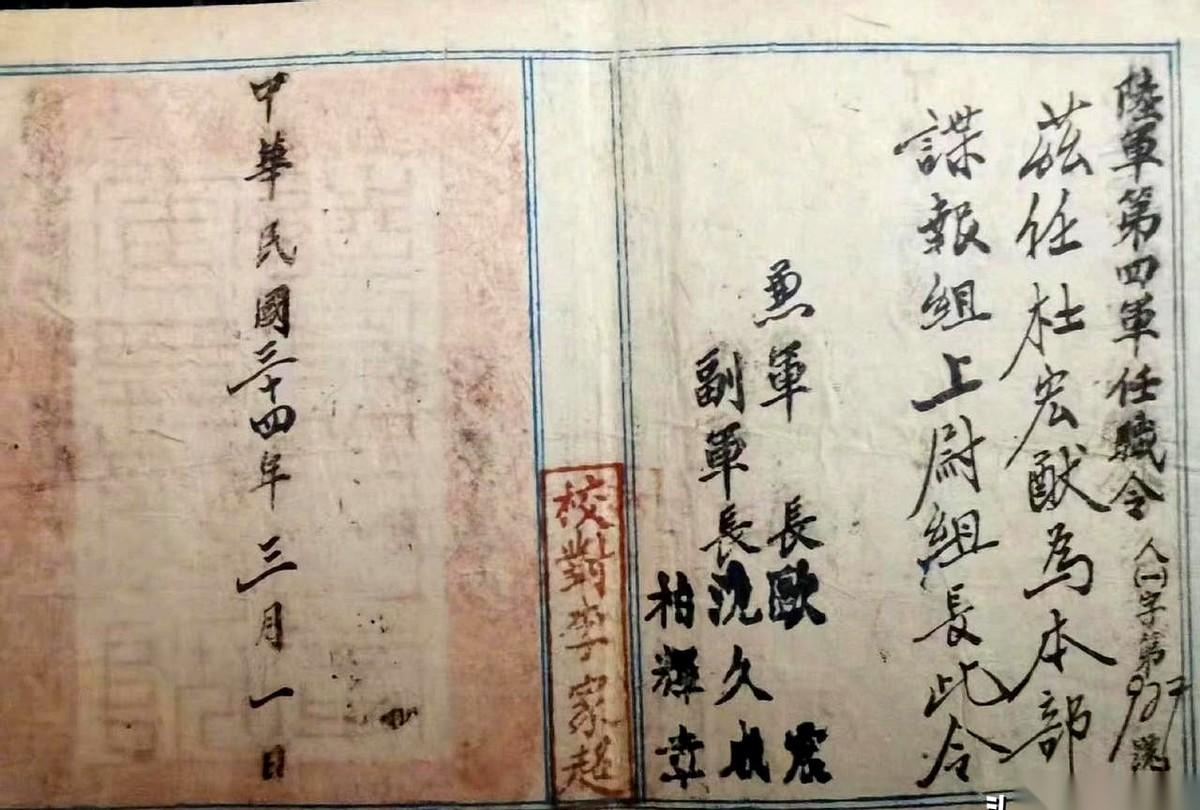 陸軍第四軍任職令 人㈠字第927號
茲任杜宏猷為本部
諜報組上尉組長此令
兼軍長歐震
副軍長沈久成
柏輝章
校對李家超
中華民國三十四年三月一日